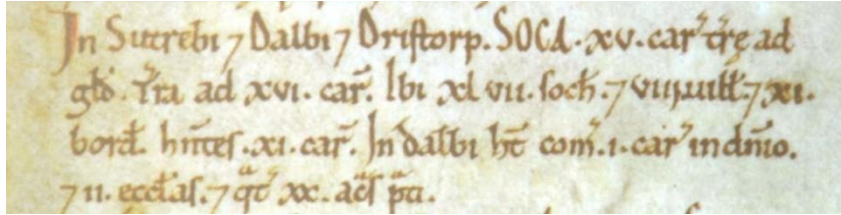 In Sutrebi ⁊ Dalbi ⁊ Driſtorp. SOCA. xv. car̃ tr̃ę ad
gld̃. Tr̃a ad xvi. car̃. Ibi xl vii. ſoch̃. ⁊ viii uill̃ ⁊ xi.
bord̃. hñteſ. xi. car̃. In dalbi ht̃ com̃. i. car̃ in dñio.
⁊ ii. eccl̃aſ. ⁊ qͣt xx. ac̃ſ p̃ti.